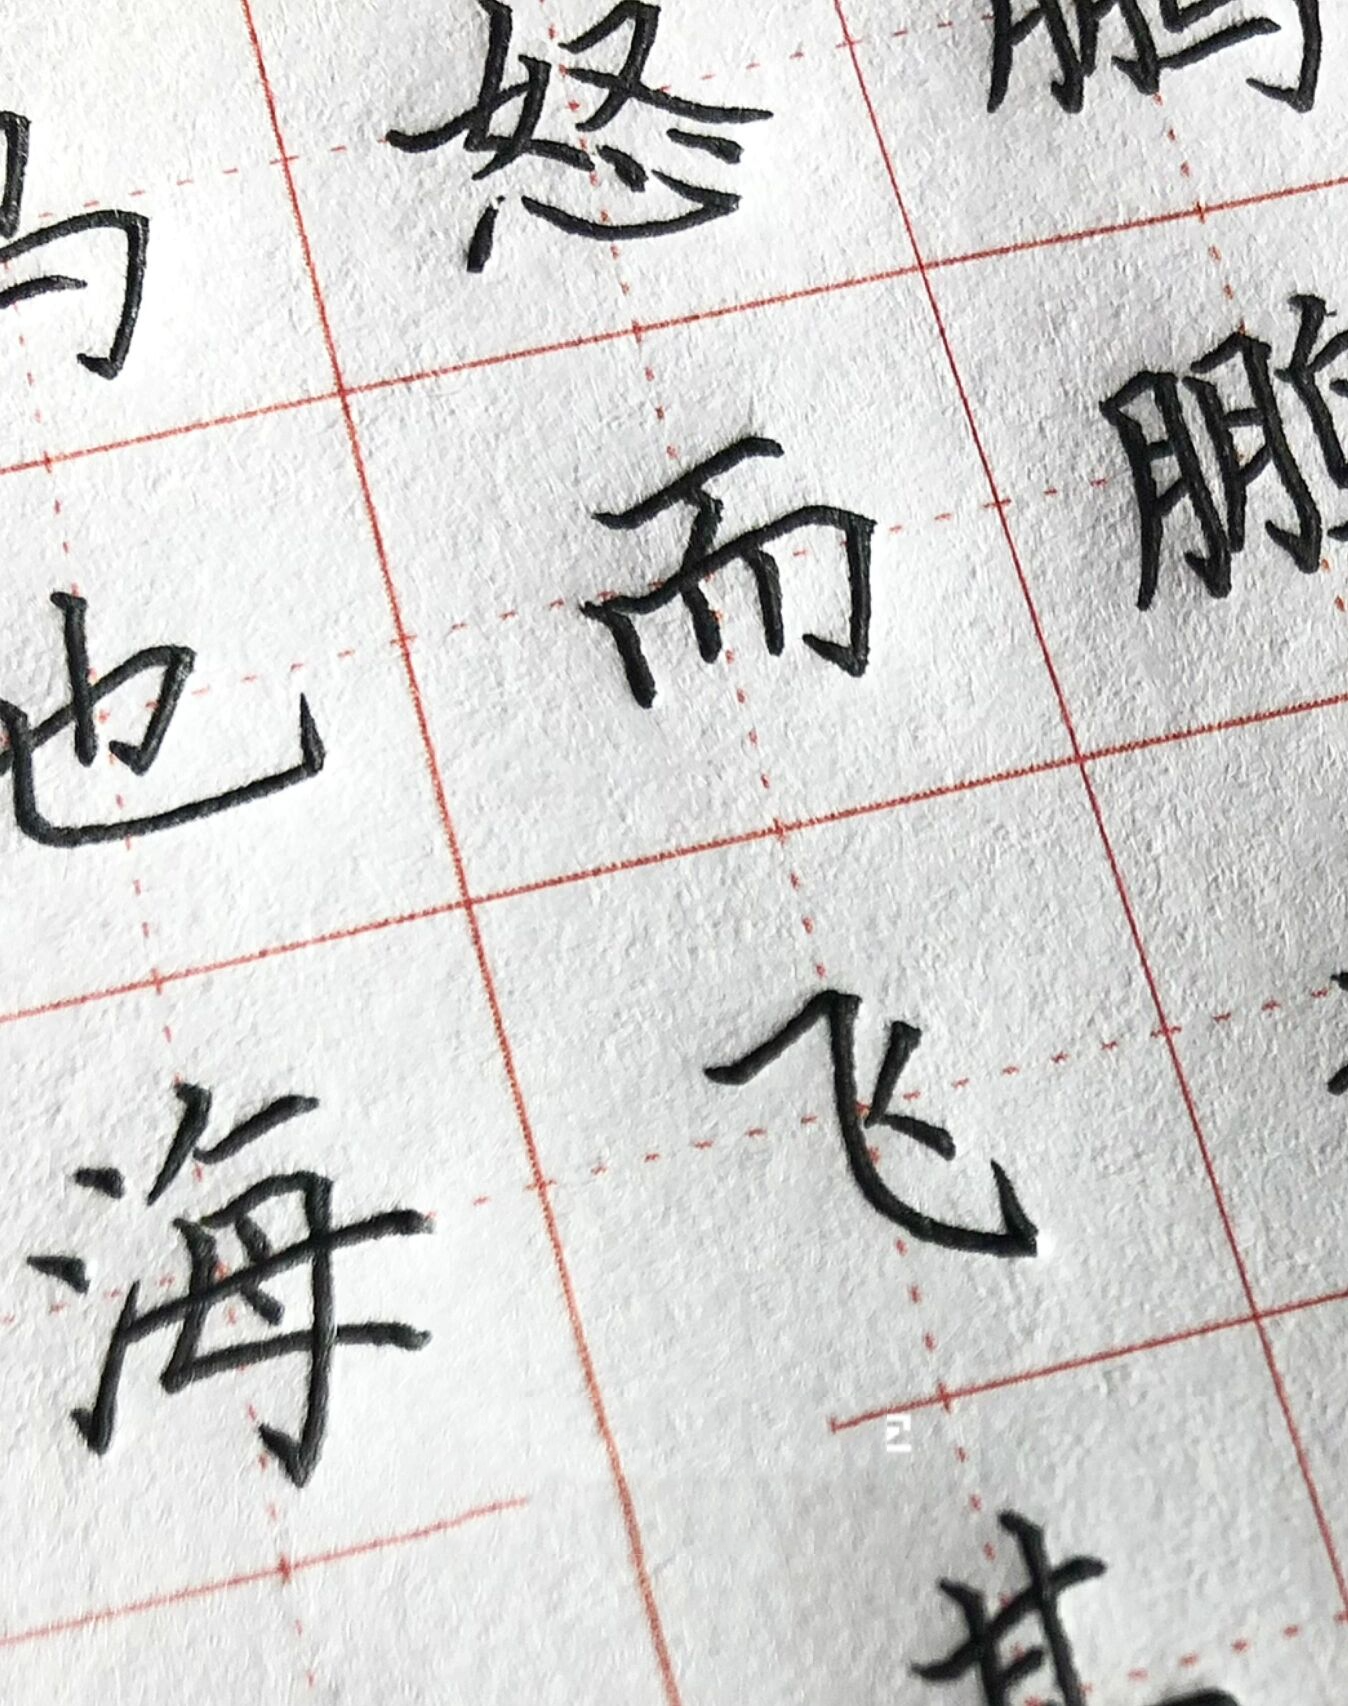 鹏鹏
怒而飞其
鸟也海